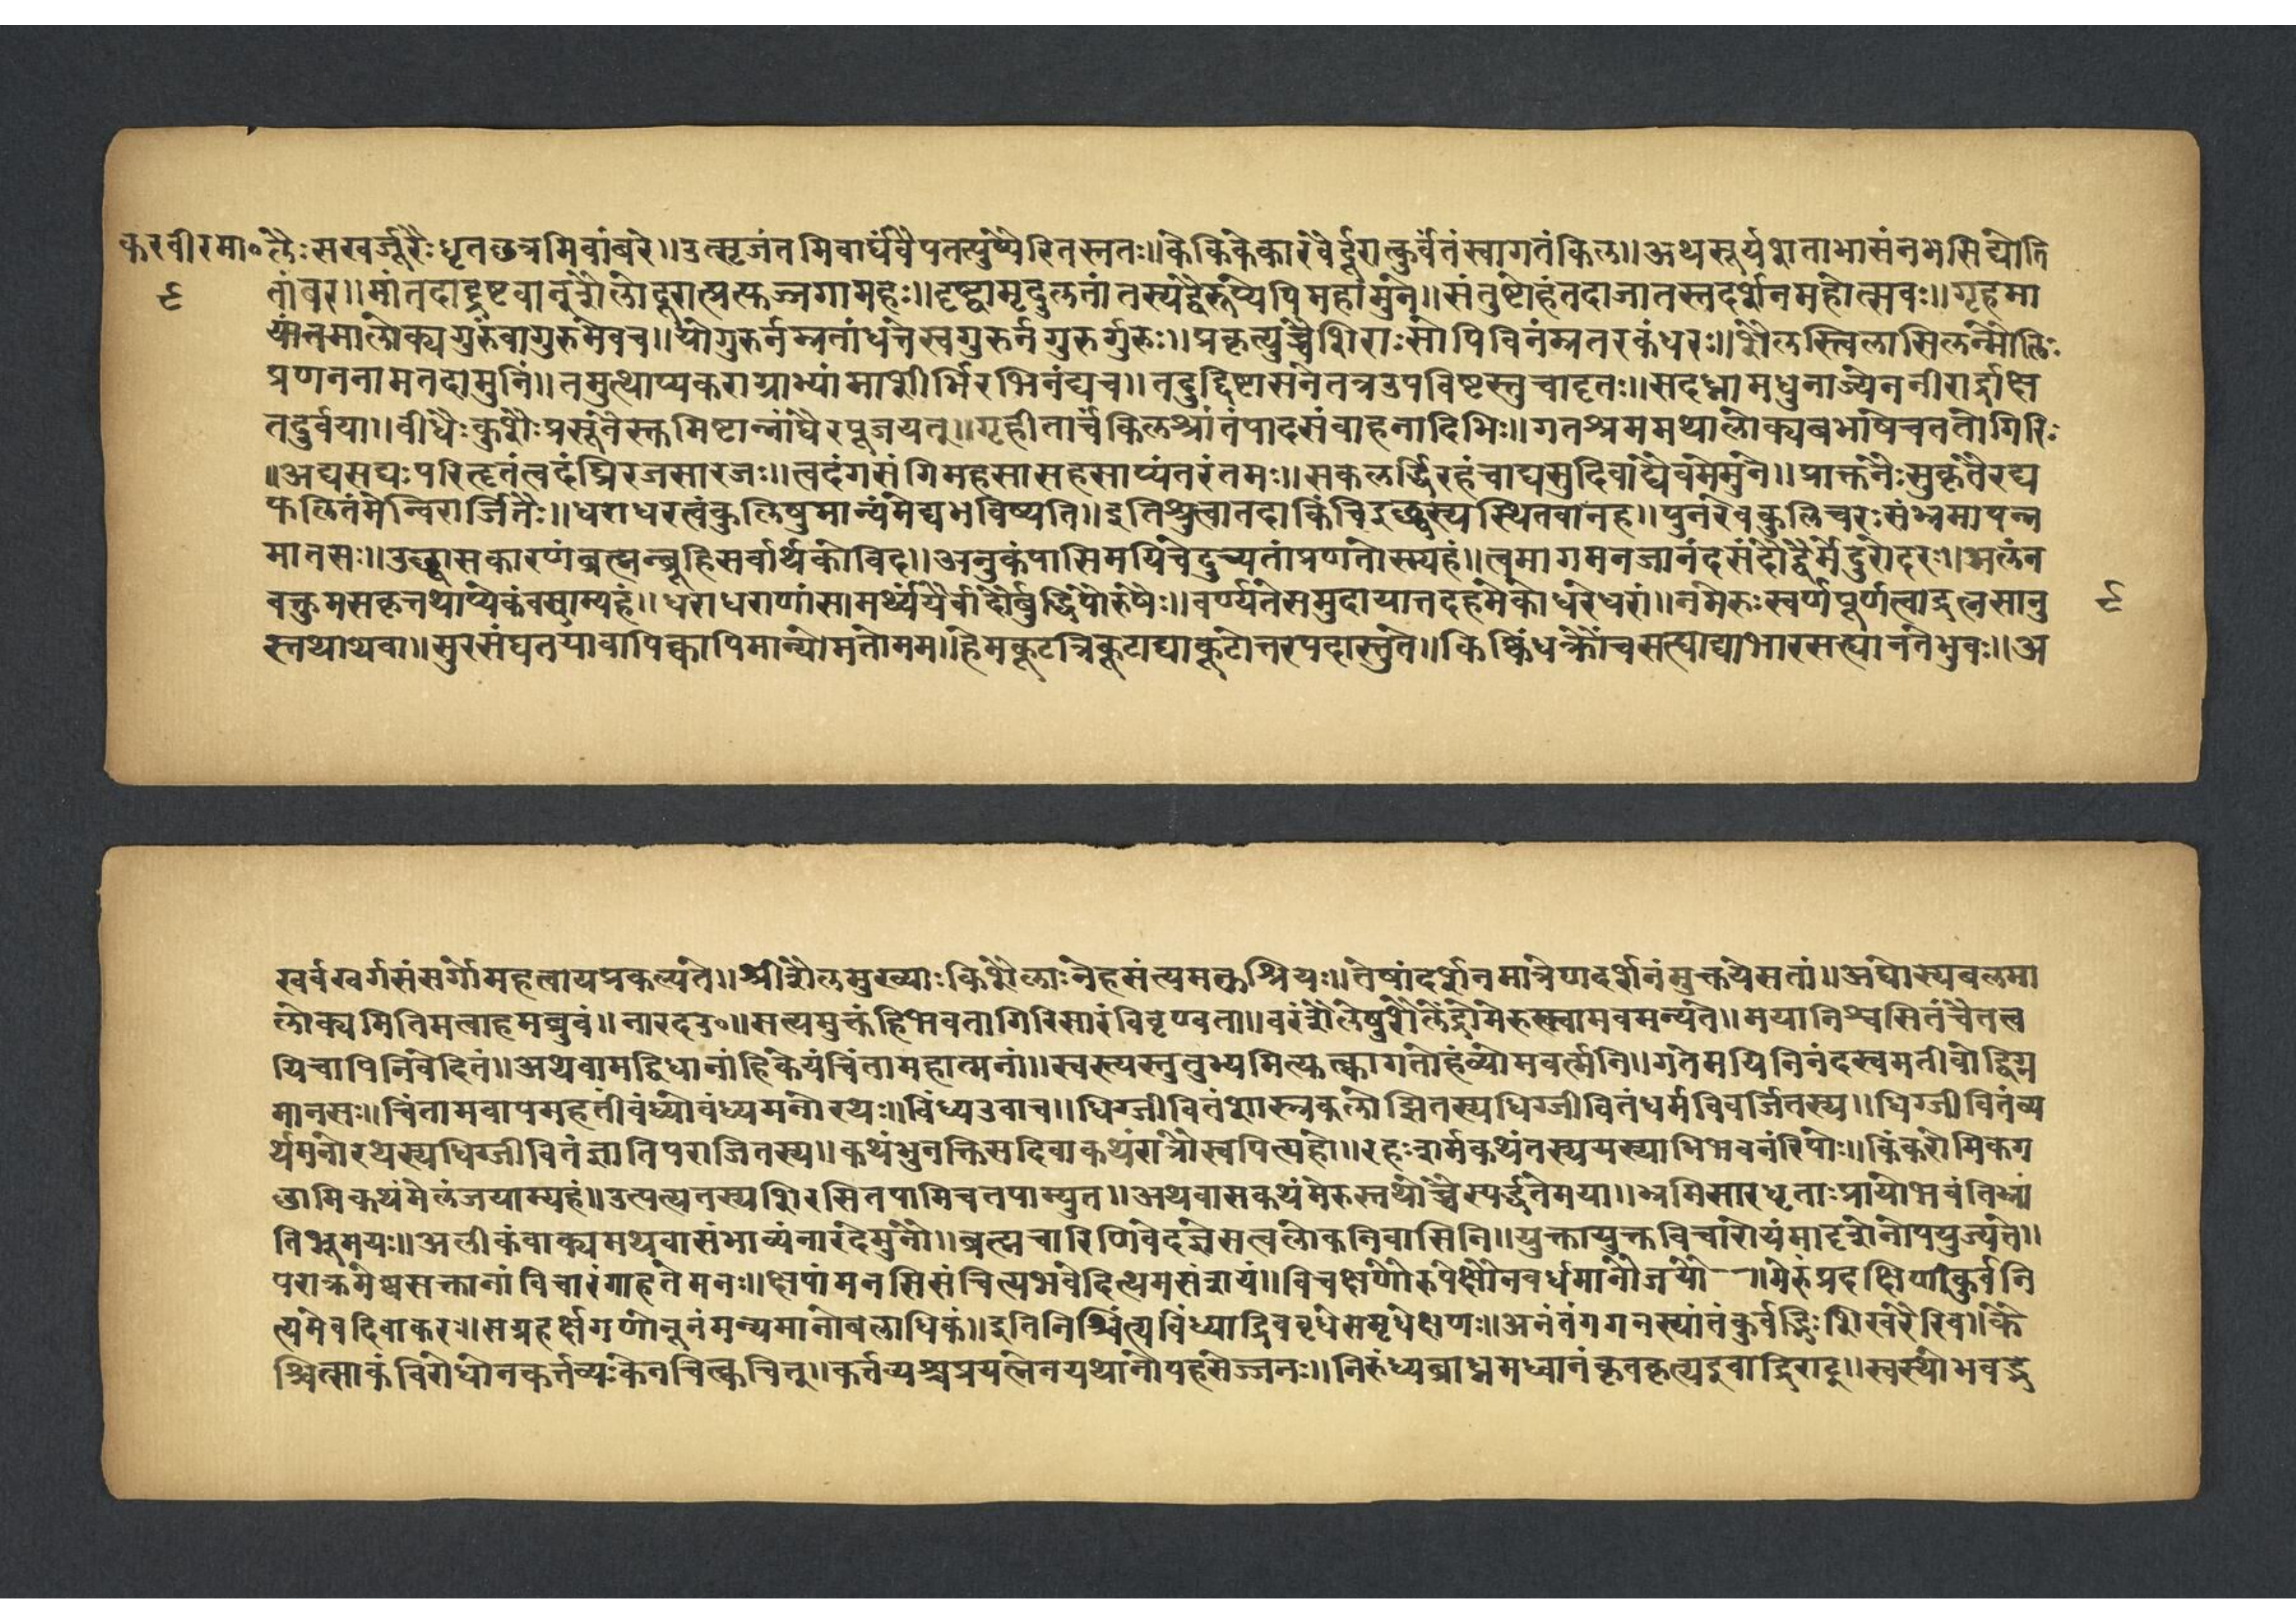 करवीरमा०लैः सखर्जूरैः धृतछत्रमिवांबरे॥ उत्सृजंतमिवार्घंवैपतत्पुष्पैरितस्ततः॥ केकिकेकारवैर्दूरात्कुर्वंतंस्वागतंकिल॥ अथसूर्यशताभासंनभसिद्योति
९ तांबर॥ मांतदादृष्टवान्शैलोदूरात्प्रत्युज्जगामहः॥ दृष्ट्वामृदुलतांतस्यद्वैरूप्येपिमहामुने॥ संतुष्टोहंतदाजातस्तदर्शनमहोत्सवः॥ गृहमा
यांतमालोक्यगुरुंवागुरुमेवच॥ योगुरुर्नम्रतांधत्तेस्वगुरुर्नगुरुर्गुरुः॥ प्रकृत्युच्चैशिराःसोपिविनम्रतरकंधरः॥ शैलस्त्विलासिलन्मौलिः
प्रणननामतदामुनिं॥ तमुत्थाप्यकराग्राभ्यांमाशीर्भिरभिनंद्यच॥ तदुद्दिष्टासनेतत्रउपविष्टस्तुचादृतः॥ सदध्नामधुनाज्येननीरार्द्राक्ष
तदुर्वया॥ वीधैः कुशैः प्रसूनैस्तमिष्टान्नांघैरपूजयत्॥ गृहीतार्चकिलश्रांतंपादसंवाहनादिभिः॥ गतश्रममथालोक्यबभाषेचततोगिरिः
॥ अद्यसद्यःपरिहृतंत्वदंघ्रिरजसारजः॥ त्वदंगसंगिमहसासहसाप्यंतरंतमः॥ सकलर्द्धिरहंचाद्यसुदिवांद्यैवमेमुने॥ प्राक्तनैःसुकृतैरद्य
फलितंमेन्चिरार्जितैः॥ धराधरत्वंकुलिषुमान्यंमेद्यभविष्यति॥ इतिश्रुत्वातदाकिंचिदुछ्वस्यस्थितवानह॥ पुनरेवकुलिचरःसंभ्रमापन्न
मातसः॥ उछ्वासकारणंब्रह्मन्ब्रूहिसर्वार्थकोविद॥ अनुकंपासिमयिचेदुच्यतांप्रणतोस्म्यहं॥ त्वमागमनजानंदसंदोहैर्मेदुरोदरः॥ अलंन
वक्तुमसकृत्तथाप्येकंवच्म्यहं॥ धराधराणांसामर्थ्यंयैर्वांदोर्बुद्धिंपौरुषैः॥ वर्ण्यतेसमुदायात्तदहमेकोधरेधरां॥ नमेरुःस्वर्णपूर्णत्वाद्रत्नसानु ९
स्तथाथवा॥ सुरसंघतयावापिक्वापिमान्योमतोमम॥ हेमकूटत्रिकूटाद्याकूटोत्तरपदास्तुते॥ किष्किंधक्रौंचसह्याद्याभारसह्यानतेभुवः॥ अ
खर्वखर्गसंसर्गोमहत्वायप्रकल्पते॥ श्रीशैलमुख्याःकिंशैलाःनेहसंत्यमत्कश्रियः॥ तेषांदर्शनमात्रेणदर्शनंमुक्तयेसतां॥ अद्यास्यबलमा
लोक्यमितिमत्वाहमब्रुवं॥ नारदउ०॥ सत्यमुक्तंहिभवतागिरिसारंविवृण्वता॥ वरंशैलेषुशैलेंद्रोमेरुस्त्वामवमन्यते॥ मयानिश्वसितंचैतत्त्व
यिचापिनिवेदितं॥ अथवामद्विधानांहिकेयंचिंतामहात्मनां॥ स्वस्त्यस्तुतुभ्यमित्युक्त्वागतोहंव्योमवर्त्मनि॥ गतेमयिनिनंदस्वमतीवोद्विग्न
मानसः॥ चिंतामवापमहतींवंध्योवंध्यमनोरथः॥ विंध्यउवाच॥ धिग्जीवितंशास्त्रकलोझितस्यधिग्जीवितंधर्मविवर्जितस्य॥ धिग्जीवितंव्य
र्थमनोरथस्यधिग्जीवितंज्ञातिपराजितस्य॥ कथंभुनक्तिसदिवाकथंरात्रौस्वपित्यहो॥ रहःशर्मकथंतस्ययस्याभिभवनंरिपोः॥ किंकरोमिकग
छामिकथंमेलंजयाम्यहं॥ उत्पत्यतस्यशिरसितपामिचतपाम्युत॥ अथवासकथंमेरुस्तथोच्चैस्पर्द्धतेमया॥ भ्रमिसारधृताःप्रायोभवंतिभ्रां
तिभूमयः॥ अलीकंवाक्यमथवासंभाव्यंनारदेमुनौ॥ ब्रह्मचारिणिवेदज्ञेसत्वलोकनिवासिनि॥ युक्तायुक्तविचारोयंमादृशेनोपयुज्यते॥
पराक्रमेष्वसक्तानांविचारंगाहतेमनः॥ क्षपांमनसिसंचित्यभवेदित्थमसंशयं॥ विचक्षणोरुपेक्षौनवर्धमानौजयौ--॥ मेरुंप्रदक्षिणीकुर्वनि
त्यमेवदिवाकरः॥ सग्रहर्क्षगणोनूनंमन्यमानोबलाधिकं॥ इतिनिश्चिंत्यविंध्याद्रिववृधेसमृधेक्षणः॥ अनंतंगगनस्यांतंकुर्वद्भिःशिखरैरिव॥ कै
श्चित्साकंविरोधोनकर्त्तव्यःकेनचित्क्वचित्॥ कर्त्तव्यश्चप्रयत्नेनयथानोपहसेज्जनः॥ निरुंध्यब्राध्नमध्वानंकृतकृत्यइवाद्रिराट्॥ स्वस्थोभवद्भ